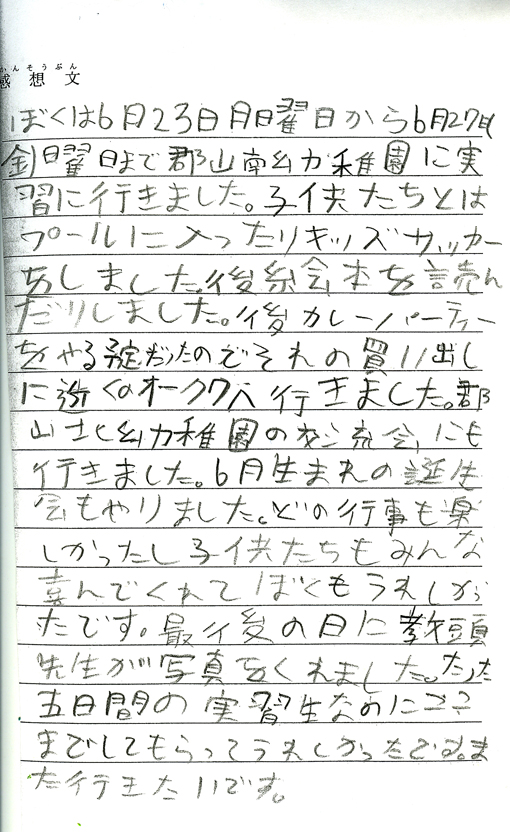 かんそうぶん
感想文
ぼくは6月23日月曜日から6月27日
金曜日まで郡山南幼稚園に実
習に行きました。子供たちとは
プールに入ったりキッズサッカー
をしました。後絵本を読ん
だりしました。後カレーパーティー
をやる予定だったのでそれの買い出し
に近くのオークワへ行きました。郡
山北幼稚園の交流会にも
行きました。6月生まれの誕生
会もやりました。どの行事も楽
しかったし子供たちもみんな
喜んでくれてぼくもうれしかっ
たです。最後の日に教頭
先生が写真をくれました。たった
五日間の実習生なのにここ
までしてもらってうれしかったです。ま
た行きたいです。